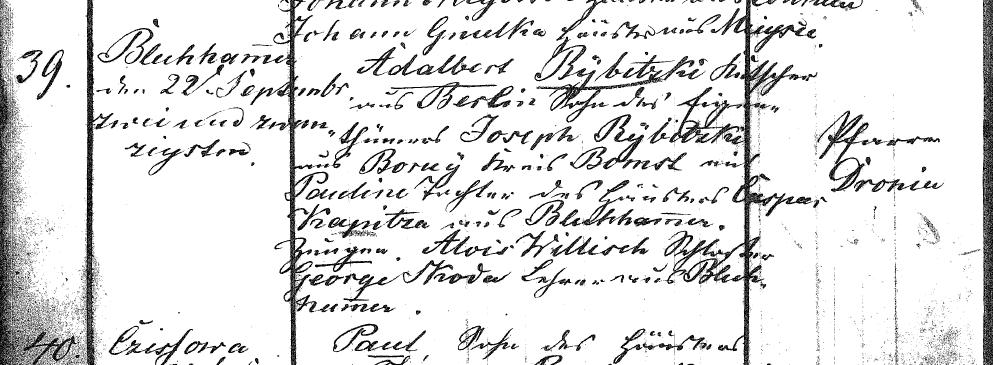 Johann Gmelka Häusler aus Miegsce.
39.
Blechhamer
den 22t. Septembr.
zwei und zwan„
zigsten.
Adalbert Rÿbitzki Kutscher
aus Berlin Sohn des Eigen„
thümers Joseph Rÿbitzki
aus Boruÿ Kreis Bomst mit
Pauline Tochter des Häuslers Caspar
Kapitza aus Blechhamer.
Zeugen. Alois Willisch Schlosser
George Skoda Lehrer aus Blech„
hamer.
Pfarrer
Dronia
40.
Czissowa
Paul, Sohn des Häuslers